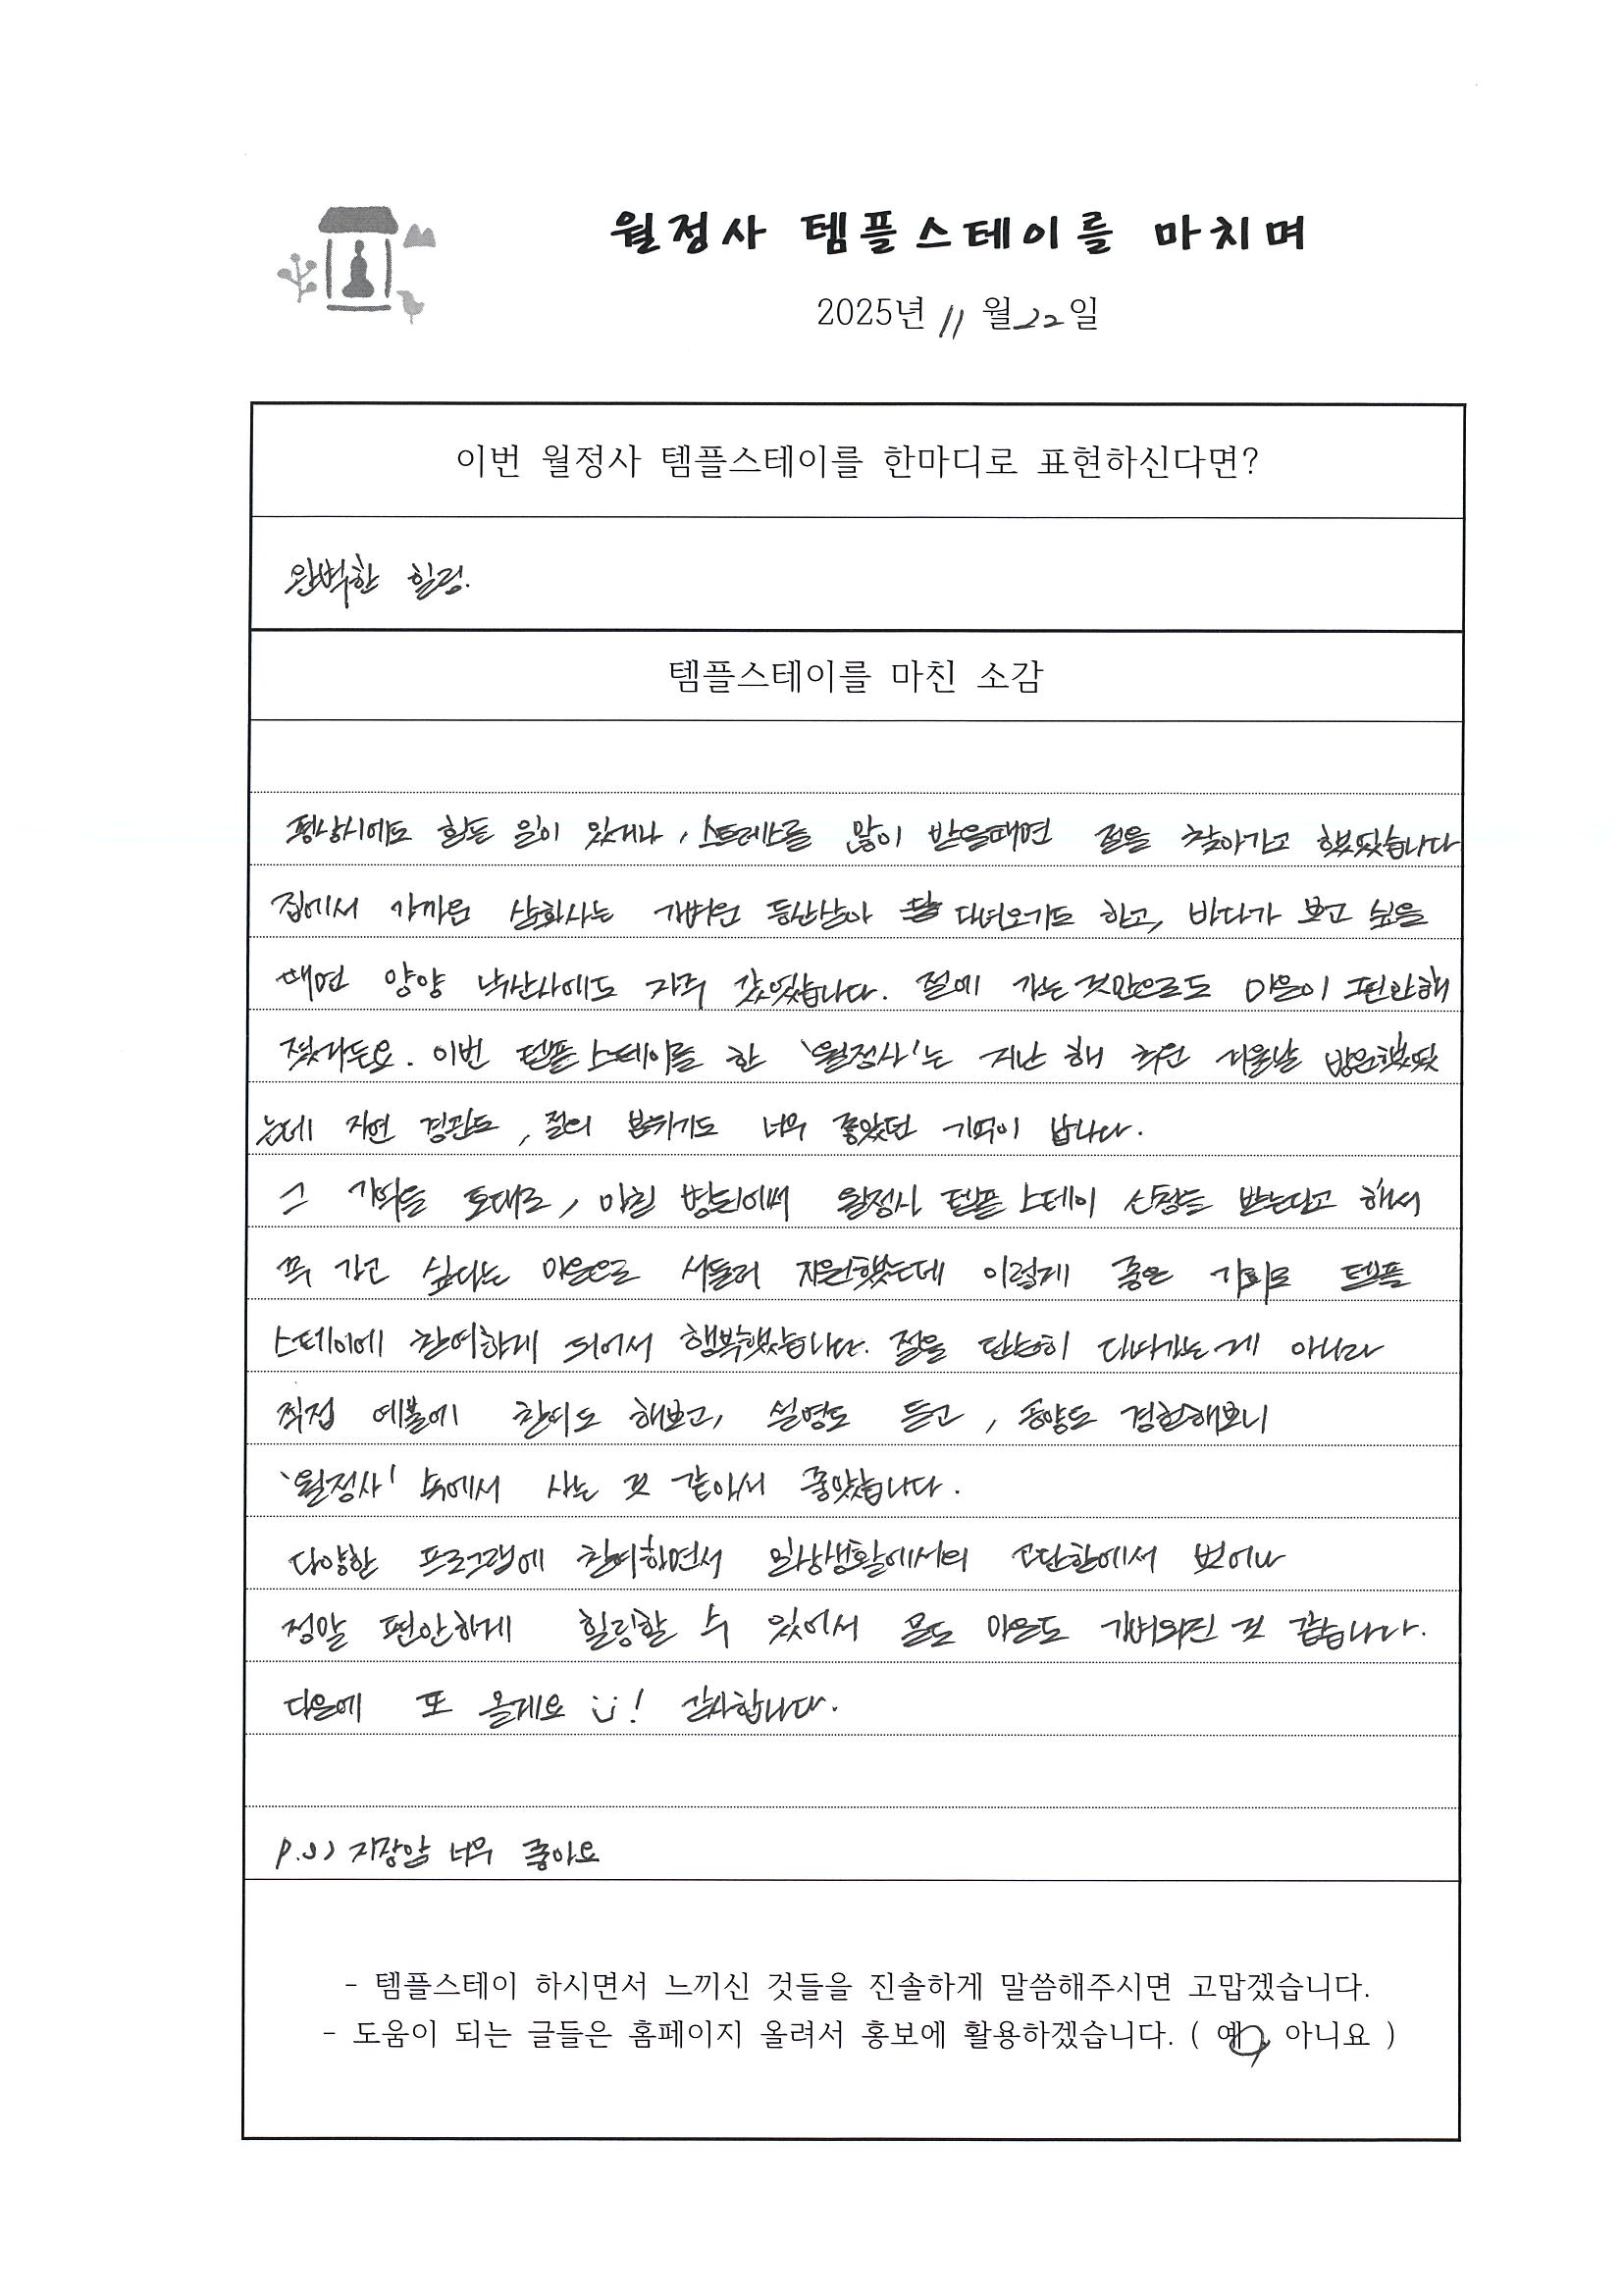 월정사 템플스테이를 마치며
2025년 11월 22일
이번 월정사 템플스테이를 한마디로 표현하신다면?
완벽한 힐링.
템플스테이를 마친 소감
평상시에도 힘든 일이 있거나, 스트레스를 많이 받을때면 절을 찾아가곤 했었습니다
집에서 가까운 삼화사는 가벼운 등산삼아 다녀오기도 하고, 바다가 보고 싶을
때면 양양 낙산사에도 자주 갔었습니다. 절에 가는 것만으로도 마음이 편안해
졌거든요. 이번 템플스테이를 한 '월정사'는 지난 해 추운 겨울날 방문했었
는데 자연 경관도, 절의 분위기도 너무 좋았던 기억이 납니다.
그 기억을 토대로, 마침 월정사 템플스테이 신청을 받는다고 해서
꼭 가고 싶다는 마음으로 서둘러 지원했는데 이렇게 좋은 기회로 템플
스테이에 참여하게 되어서 행복했습니다. 절을 단순히 다녀가는 게 아니라
직접 예불에 참여도 해보고, 설명도 듣고, 공양도 경험해보니
'월정사' 속에서 사는 것 같아서 좋았습니다.
다양한 프로그램에 참여하면서 일상생활에서의 고단함에서 벗어나
정말 편안하게 힐링할 수 있어서 몸도 마음도 가벼워진 것 같습니다.
다음에 또 올게요 :)! 감사합니다.
P.S) 지장암 너무 좋아요
- 템플스테이 하시면서 느끼신 것들을 진솔하게 말씀해주시면 고맙겠습니다.
- 도움이 되는 글들은 홈페이지 올려서 홍보에 활용하겠습니다. ( 예, 아니요 )